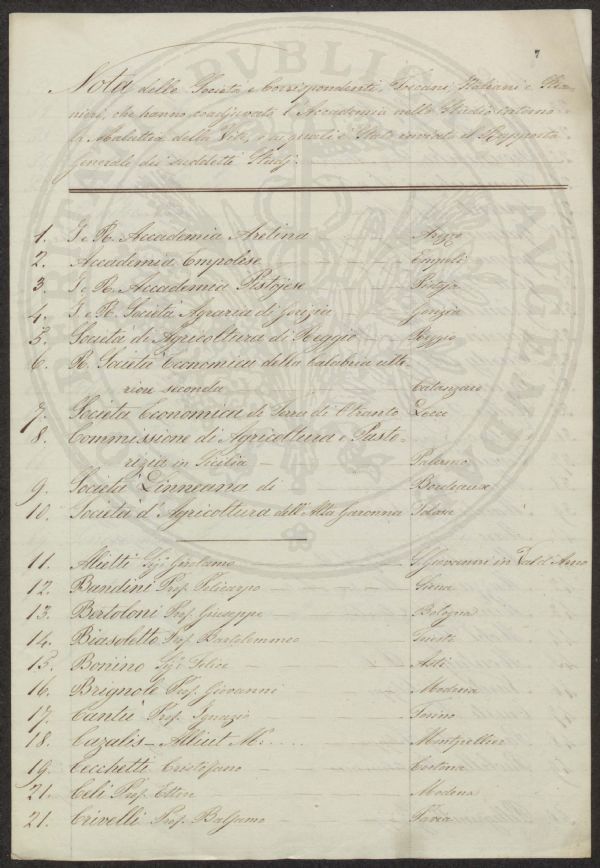 7
Nota delle Società e Corrispondenti, Toscani, Italiani e Stra-
nieri, che hanno coadjuvato l'Accademia nello Studio intorno
la Malattia della Vite, e ai quali è stato inviato il Rapporto
Generale dei suddetti Studj.
1. I. e R. Accademia Aretina — Arezzo
2. Accademia Empolese — Empoli
3. I. e R. Accademia Pistojese — Pistoja
4. I. e R. Società Agraria di Gorizia — Gorizia
5. Società di Agricoltura di Reggio — Reggio
6. R. Società Economica della Calabria ulte-
riore seconda Catanzaro
7. Società Economica di Terra di Otranto Lecce
8. Commissione di Agricoltura e Pasto-
rizia in Sicilia — Palermo
9. Società Linneana di — Bordeaux
10. Società d'Agricoltura dell'Alta Garonna Tolosa
11. Alietti Sigr Girolamo S. Giovanni in Val d'Arno
12. Bandini Prof. Policarpo — Siena
13. Bertoloni Prof. Giuseppe — Bologna
14. Biasoletto Prof. Bartolommeo — Trieste
15. Bonino Sigr Felice — Asti
16. Brignole Prof. Giovanni — Modena
17. Cantù Prof. Ignazio — Torino
18. Cazalis-Alliut Mr. .... — Montpellier
19. Cecchetti Cristofano — Cortona
21. Celi Prof. Ettore — Modena
21. Crivelli Prof. Balsamo — Pavia